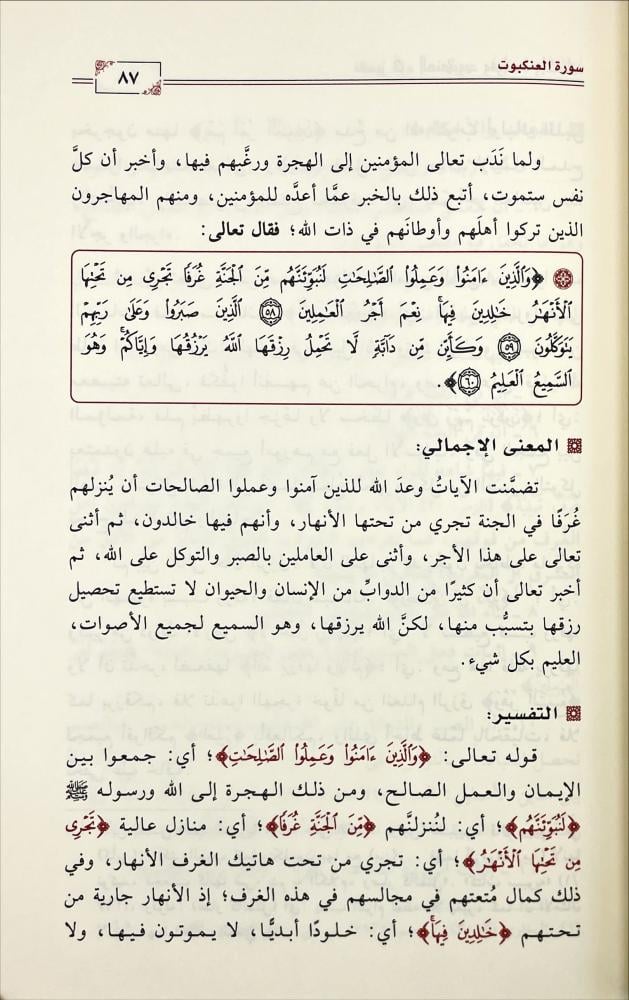 سورة العنكبوت
٨٧
ولما نَدَب تعالى المؤمنين إلى الهجرة ورغَّبهم فيها، وأخبر أن كلَّ
نفس ستموت، أتبع ذلك بالخبر عمَّا أعدَّه للمؤمنين، ومنهم المهاجرون
الذين تركوا أهلَهم وأوطانَهم في ذات الله؛ فقال تعالى:
﴿وَالَّذِينَ ءَامَنُوا وَعَمِلُوا الصَّالِحَاتِ لَنُبَوِّئَنَّهُم مِّنَ الْجَنَّةِ غُرَفًا تَجْرِى مِن تَحْتِهَا
الْأَنْهَارُ خَالِدِينَ فِيهَا ۚ نِعْمَ أَجْرُ الْعَامِلِينَ ٥٨ الَّذِينَ صَبَرُوا وَعَلَىٰ رَبِّهِمْ
يَتَوَكَّلُونَ ٥٩ وَكَأَيِّن مِّن دَابَّةٍ لَّا تَحْمِلُ رِزْقَهَا اللَّهُ يَرْزُقُهَا وَإِيَّاكُمْ ۚ وَهُوَ
السَّمِيعُ الْعَلِيمُ ٦٠﴾.
المعنى الإجمالي:
تضمَّنت الآياتُ وعدَ الله للذين آمنوا وعملوا الصالحات أن يُنزلهم
غُرَفًا في الجنة تجري من تحتها الأنهار، وأنهم فيها خالدون، ثم أثنى
تعالى على هذا الأجر، وأثنى على العاملين بالصبر والتوكل على الله، ثم
أخبر تعالى أن كثيرًا من الدوابِّ من الإنسان والحيوان لا تستطيع تحصيل
رزقها بتسبُّب منها، لكنَّ الله يرزقها، وهو السميع لجميع الأصوات،
العليم بكل شيء.
التفسير:
قوله تعالى: ﴿وَالَّذِينَ ءَامَنُوا وَعَمِلُوا الصَّالِحَاتِ﴾؛ أي: جمعوا بين
الإيمان والعمل الصالح، ومن ذلك الهجرة إلى الله ورسوله ﷺ
﴿لَنُبَوِّئَنَّهُم﴾؛ أي: لنُنزلنَّهم ﴿مِّنَ الْجَنَّةِ غُرَفًا﴾؛ أي: منازل عالية ﴿تَجْرِى
مِن تَحْتِهَا الْأَنْهَارُ﴾؛ أي: تجري من تحت هاتيك الغرف الأنهار، وفي
ذلك كمال مُتعتهم في مجالسهم في هذه الغرف؛ إذ الأنهار جارية من
تحتهم ﴿خَالِدِينَ فِيهَا﴾؛ أي: خلودًا أبديًّا، لا يموتون فيها، ولا